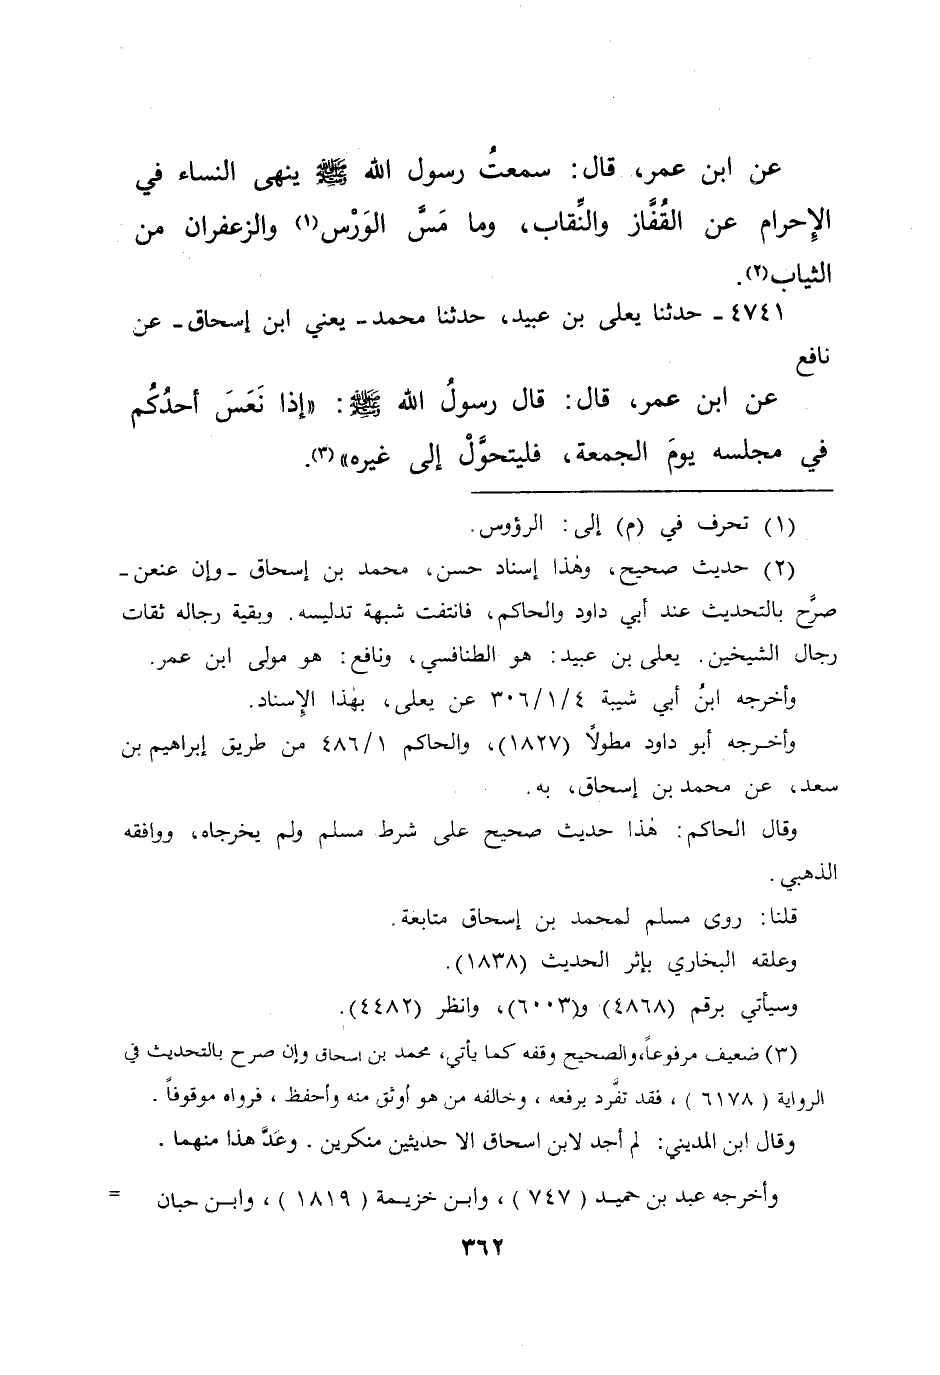 عن ابن عمر، قال: سمعتُ رسول الله ﷺ ينهى النساء في
الإحرام عن القُفَّاز والنِّقاب، وما مَسَّ الوَرْس(١) والزعفران من
الثياب(٢).
٤٧٤١ ـ حدثنا يعلى بن عبيد، حدثنا محمد ـ يعني ابن إسحاق ـ عن
نافع
عن ابن عمر، قال: قال رسولُ الله ﷺ: «إذا نَعَسَ أحدُكُم
في مجلسه يومَ الجمعة، فليتحوَّلْ إلى غيره»(٣).
(١) تحرف في (م) إلى: الرؤوس.
(٢) حديث صحيح، وهٰذا إسناد حسن، محمد بن إسحاق ـ وإن عنعن ـ
صرَّح بالتحديث عند أبي داود والحاكم، فانتفت شبهة تدليسه. وبقية رجاله ثقات
رجال الشيخين. يعلى بن عبيد: هو الطنافسي، ونافع: هو مولى ابن عمر.
وأخرجه ابنُ أبي شيبة ٣٠٦/١/٤ عن يعلى، بهٰذا الإسناد.
وأخرجه أبو داود مطولاً (١٨٢٧)، والحاكم ٤٨٦/١ من طريق إبراهيم بن
سعد، عن محمد بن إسحاق، به.
وقال الحاكم: هٰذا حديث صحيح على شرط مسلم ولم يخرجاه، ووافقه
الذهبي.
قلنا: روى مسلم لمحمد بن إسحاق متابعة.
وعلقه البخاري بإثر الحديث (١٨٣٨).
وسيأتي برقم (٤٨٦٨) و(٦٠٠٣)، وانظر (٤٤٨٢).
(٣) ضعيف مرفوعاً، والصحيح وقفه كما يأتي، محمد بن اسحاق وإن صرح بالتحديث في
الرواية ( ٦١٧٨ ) ، فقد تفَّرد برفعه ، وخالفه من هو أوثق منه وأحفظ ، فرواه موقوفاً .
وقال ابن المديني: لم أجد لابن اسحاق الا حديثين منكرين . وعَدَّ هذا منهما .
وأخرجه عبد بن حميد ( ٧٤٧ ) ، وابن خزيمة ( ١٨١٩ ) ، وابن حبان =
٣٦٢